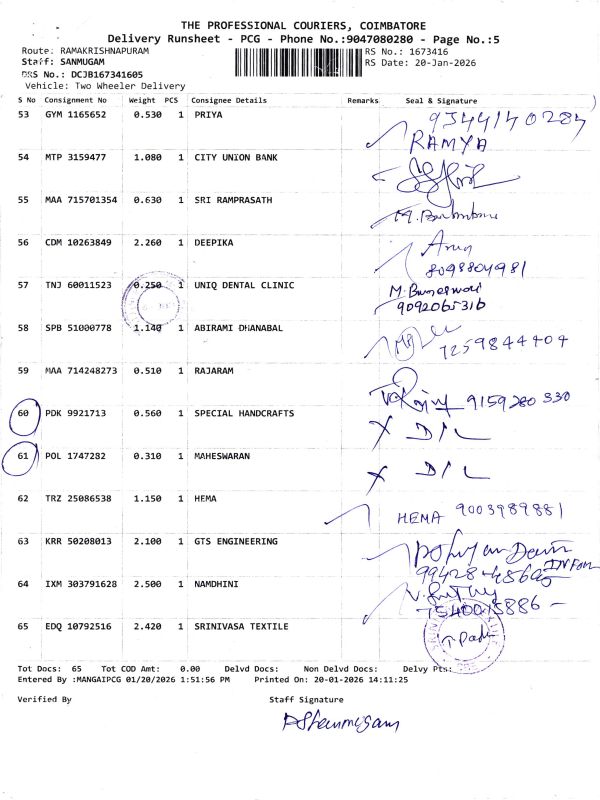 THE PROFESSIONAL COURIERS, COIMBATORE
Delivery Runsheet - PCG - Phone No.:9047080280 - Page No.:5
Route: RAMAKRISHNAPURAM RS No.: 1673416
Staff: SANMUGAM RS Date: 20-Jan-2026
DRS No.: DCJB167341605
Vehicle: Two Wheeler Delivery
S No Consignment No Weight PCS Consignee Details Remarks Seal & Signature
53 GYM 1165652 0.530 1 PRIYA
RAMYA
54 MTP 3159477 1.080 1 CITY UNION BANK
55 MAA 715701354 0.630 1 SRI RAMPRASATH
56 CDM 10263849 2.260 1 DEEPIKA
8098804981
57 TNJ 60011523 0.250 1 UNIQ DENTAL CLINIC
9092065316
58 SPB 51000778 1.140 1 ABIRAMI DHANABAL
7259844404
59 MAA 714248273 0.510 1 RAJARAM
9159280330
60 PDK 9921713 0.560 1 SPECIAL HANDCRAFTS
X D/L
61 POL 1747282 0.310 1 MAHESWARAN
X D/L
62 TRZ 25086538 1.150 1 HEMA
HEMA 9003989881
63 KRR 50208013 2.100 1 GTS ENGINEERING
64 IXM 303791628 2.500 1 NAMDHINI
65 EDQ 10792516 2.420 1 SRINIVASA TEXTILE
Tot Docs: 65 Tot COD Amt: 0.00 Delvd Docs: Non Delvd Docs: Delvy Pts:
Entered By :MANGAIPCG 01/20/2026 1:51:56 PM Printed On: 20-01-2026 14:11:25
Verified By Staff Signature